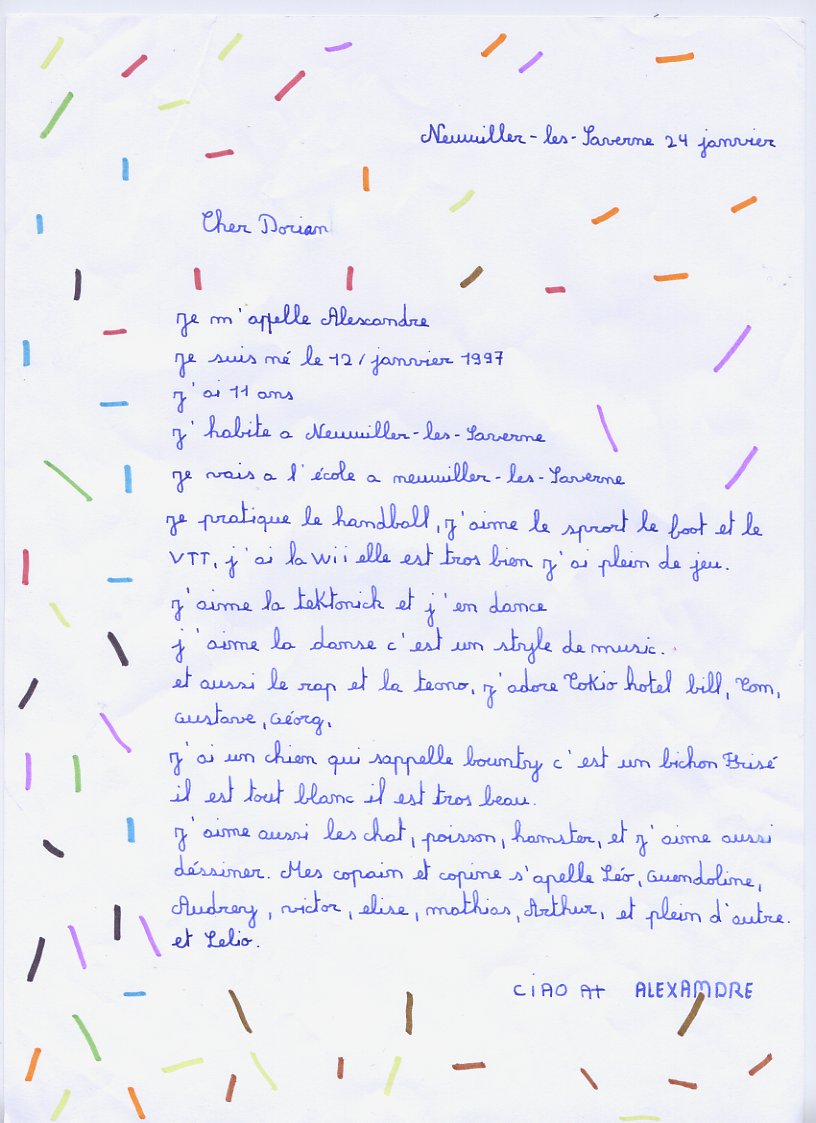 Neuwiller-les-Saverne 24 janvier
Cher Dorian
je m'appelle Alexandre
je suis né le 12/janvier 1997
j'ai 11 ans
j'habite a Neuwiller-les-Saverne
je vais a l'école a neuwiller-les-Saverne
je pratique le handball, j'aime le sprort le foot et le
VTT, j'ai la wii elle est tros bien j'ai plein de jeu.
j'aime la teKtonick et j'en dance
j'aime la danse c'est un stryle de music.
et aussi le rap et la tecno, j'adore Tokio hotel bill, Tom,
Gustave, Géorg.
j'ai un chien qui sappelle bountry c'est un bichon Frisé
il est tout blanc il est tros beau.
j'aime aussi les chat, poisson, hamster, et j'aime aussi
déssiner. Mes copain et copine s'apelle Léo, Guendoline,
Audrey, victor, elise, mathias, Arthur, et plein d'autre.
et Lelio.
CIAO A+ ALEXAMDRE